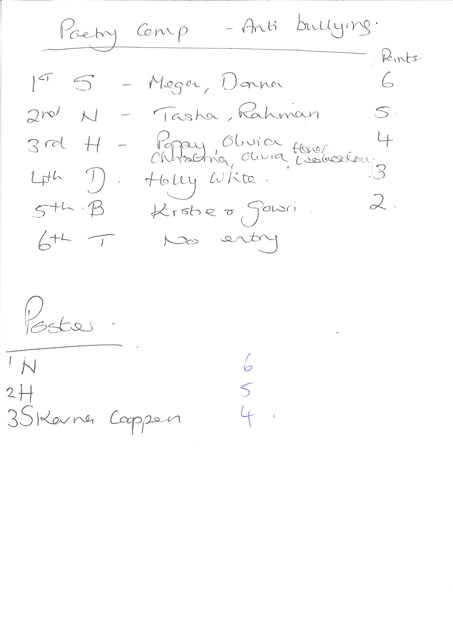 Poetry Comp - Anti bullying.
Points.
1st S - Megan, Donna 6
2nd N - Tasha, Rahman 5.
3rd H - Poppy, Olivia 4
Christina, Olivia,
4th D. Holly White. 3
5th B Gowri. 2.
6th T No entry
Poster.
1 N 6
2 H 5
3 S Coppen 4.